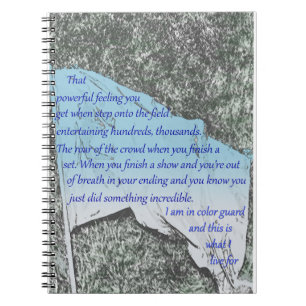 That
powerful feeling you
get when step onto the field
entertaining hundreds, thousands.
The roar of the crowd when you finish a
set. When you finish a show and you're out
of breath in your ending and you know you
just did something incredible.
I am in color guard
and this is
what I
live for